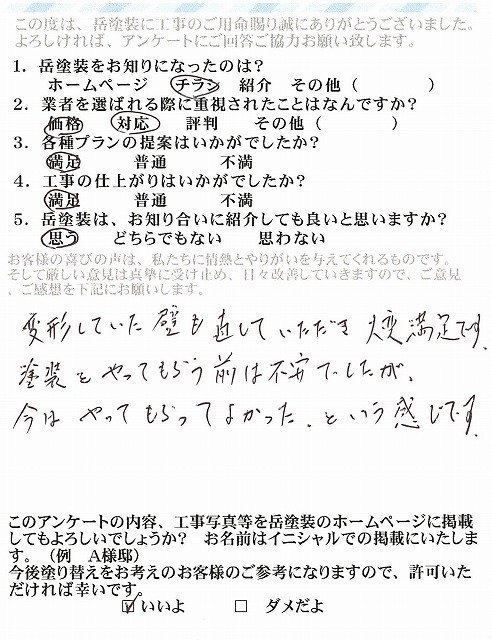 この度は、岳塗装に工事のご用命賜り誠にありがとうございました。
よろしければ、アンケートにご回答ご協力お願い致します。
1．岳塗装をお知りになったのは？
ホームページ　チラシ　紹介　その他（　　　　　）
2．業者を選ばれる際に重視されたことはなんですか？
価格　対応　評判　その他（　　　　　）
3．各種プランの提案はいかがでしたか？
満足　普通　不満
4．工事の仕上がりはいかがでしたか？
満足　普通　不満
5．岳塗装は、お知り合いに紹介しても良いと思いますか？
思う　どちらでもない　思わない
お客様の喜びの声は、私たちに情熱とやりがいを与えてくれるものです。
そして厳しい意見は真摯に受け止め、日々改善していきますので、ご意見
、ご感想を下記にお願いします。
変形していた壁も直していただき大変満足です。
塗装をやってもらう前は不安でしたが、
今は やってもらってよかった、という感じです。
このアンケートの内容、工事写真等を岳塗装のホームページに掲載
してもよろしいでしょうか？　お名前はイニシャルでの掲載にいたしま
す。（例　A様邸）
今後塗り替えをお考えのお客様のご参考になりますので、許可いた
だければ幸いです。
☑ いいよ　□ ダメだよ